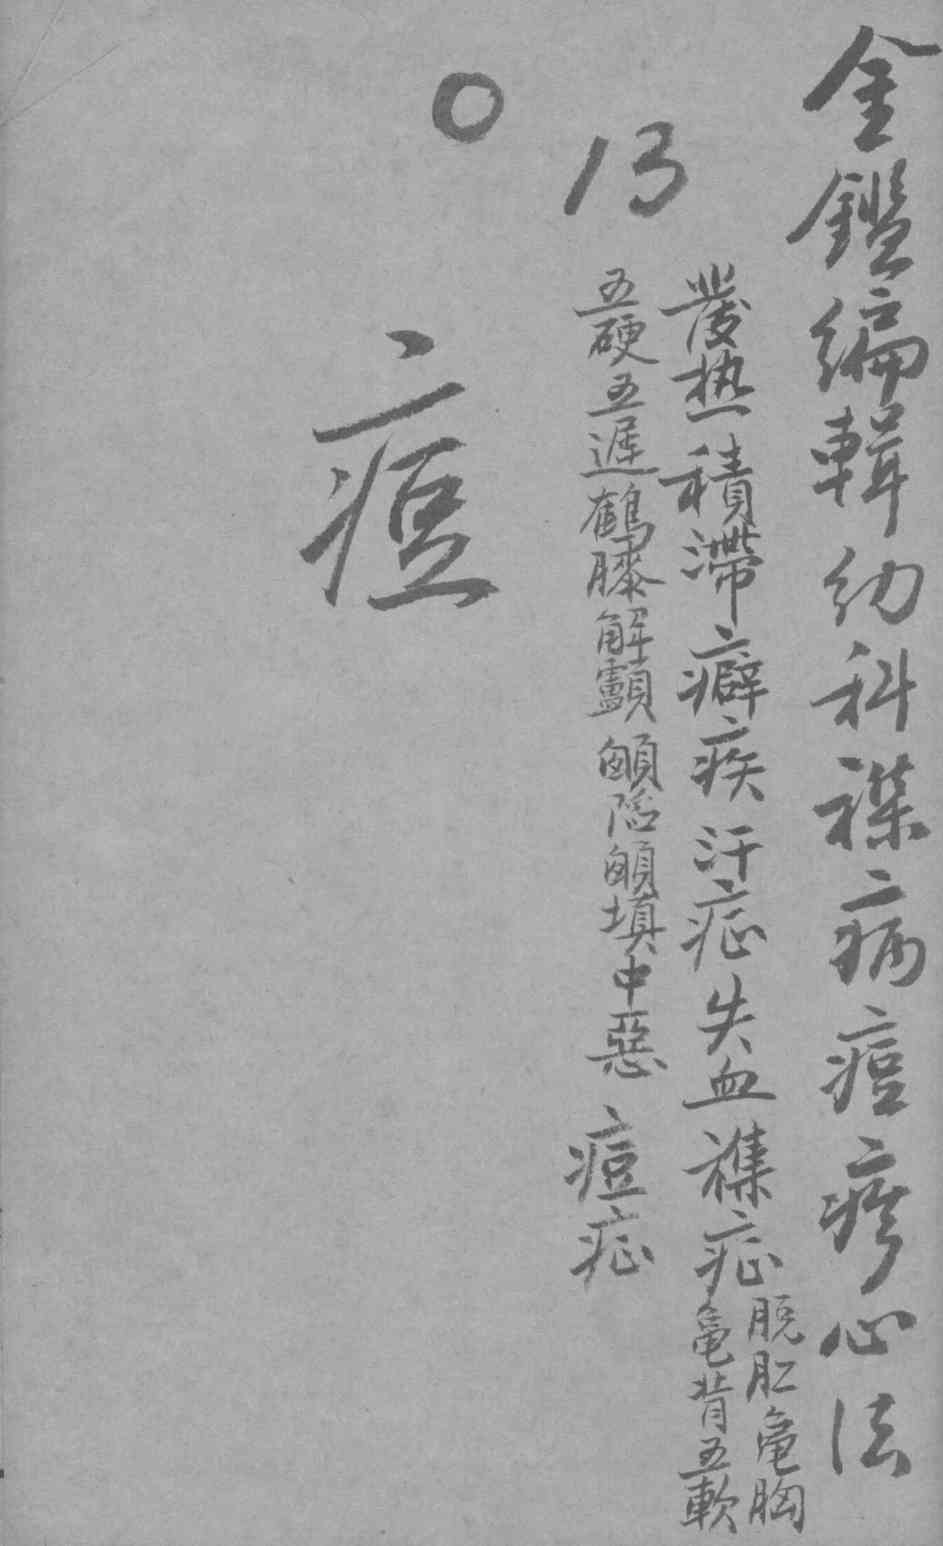 金鑑編輯幼科襍病痘疹心法
發热積滯癖疾汗症失血襍症
脱肛龟胸
龟背五軟
五硬五遲鶴膝解顱顖陷顖填中惡 痘症
13
○
痘